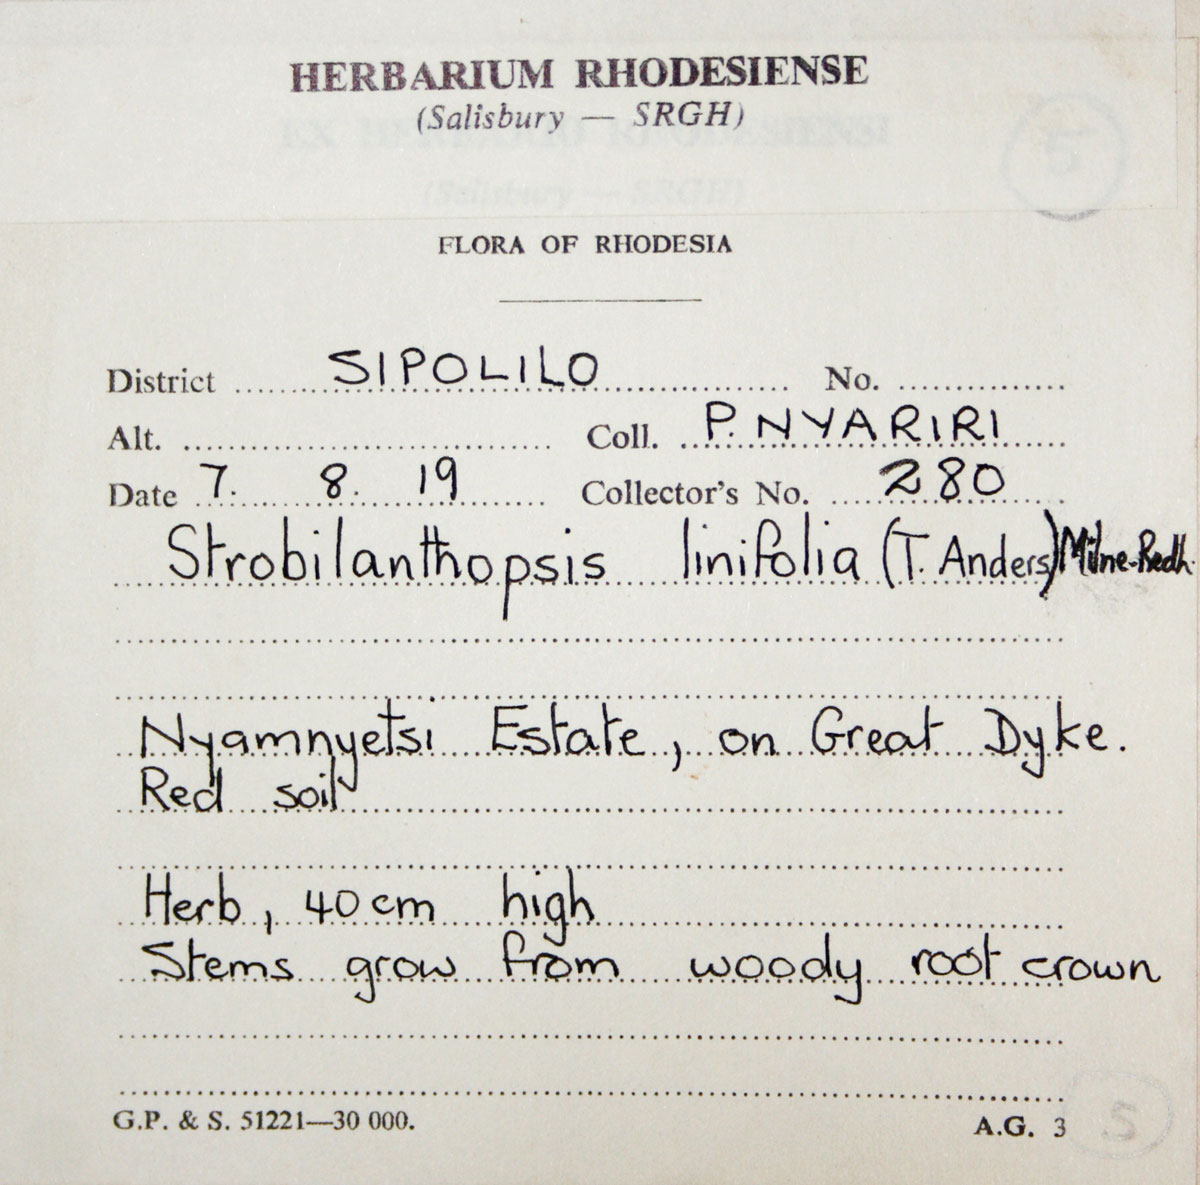 HERBARIUM RHODESIENSE
(Salisbury — SRGH)
EX HERBARIO RHODESIENSI
(Salisbury — SRGH)
5
FLORA OF RHODESIA
District SIPOLILO No.
Alt. Coll. P. NYARIRI
Date 7. 8. 19 Collector's No. 280
Strobilanthopsis linifolia (T. Anders) Milne-Redh.
Nyamnyetsi Estate, on Great Dyke.
Red soil
Herb, 40cm high
Stems grow from woody root crown
G.P. & S. 51221—30 000. A.G. 3
5